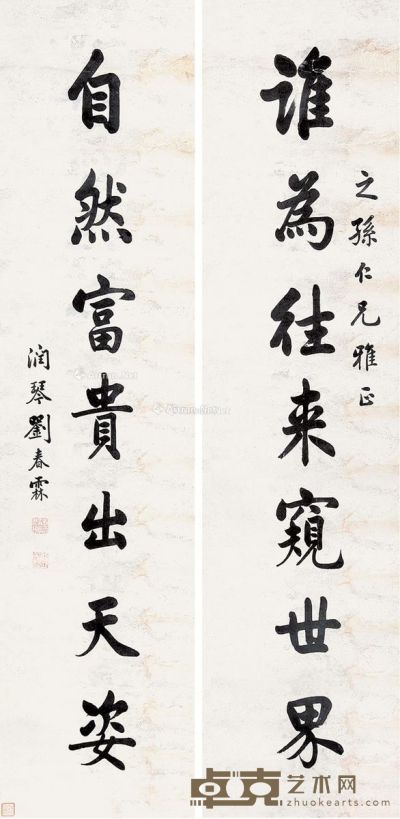 誰為往来窺世界
之孫仁兄雅正
自然富貴出天姿
润琴劉春霖
卓克艺术网
zhuokearts.com